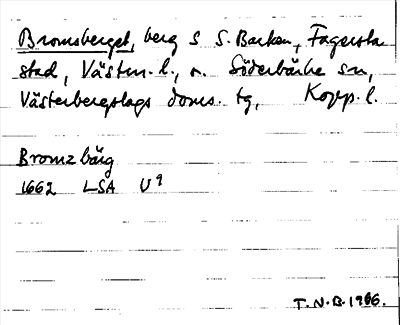 Bromsberget, berg S S. Barken, Fagersta
stad, Västm. l., o. Söderbärke sn,
Västerbergslags doms. tg, Kopp. l.
Bromz bärg
1662 LSA U9
T.N.B. 1966.